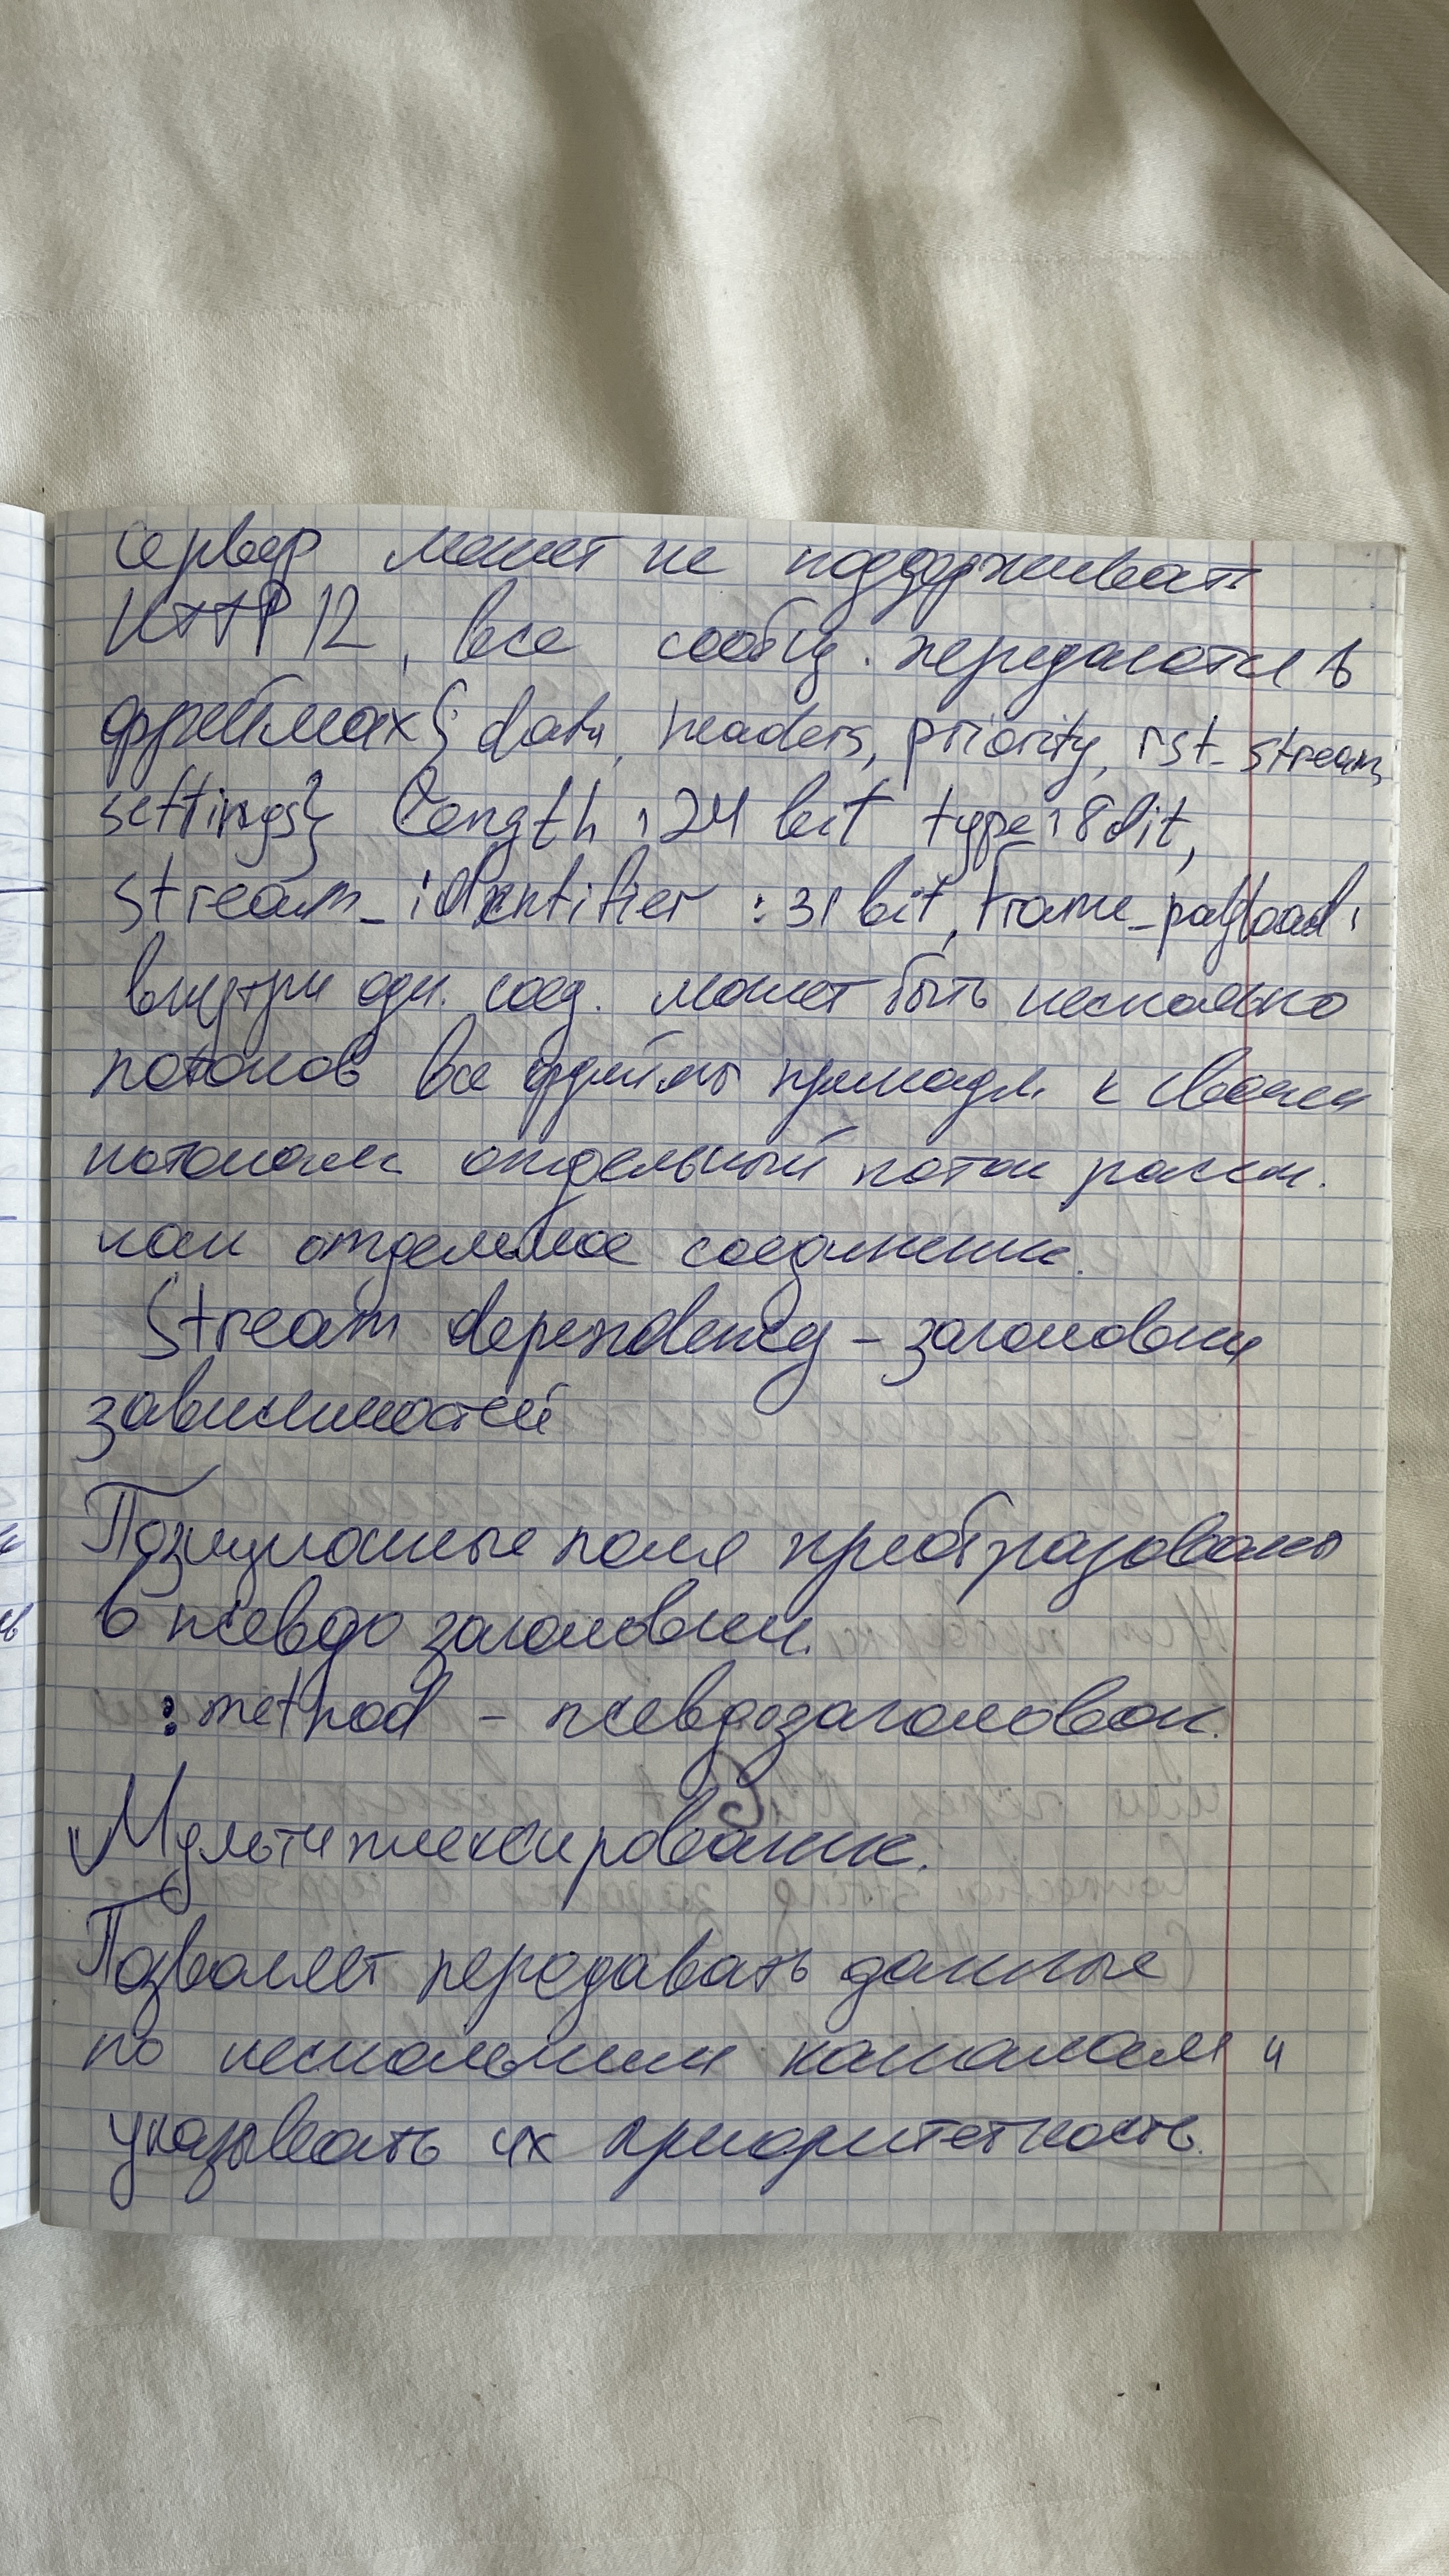 сервер может не поддерживать
HTTP/2, все сообщ. передаются в
фреймах { data, headers, priority, rst_stream,
settings} length : 24 bit type : 8 bit,
stream_identifier : 31 bit, frame_payload :
внутри одн. соед. может быть несколько
потоков все фреймы принадл. к своим
потокам отдельный поток рассм.
как отдельное соединение.
Stream dependency – заголовки
зависимостей
Позиционные поля преобразованы
в псевдо заголовки.
:method – псевдозаголовок.
Мультиплексирование.
Позволяет передавать данные
по нескольким каналам и
указывать их приоритетность.